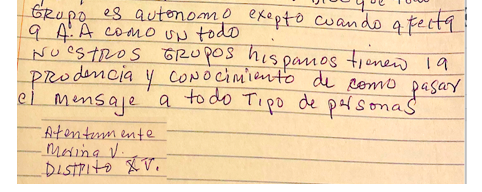 Grupo es autonomo exepto cuando afecta
a A.A como un todo
Nuestros Grupos hispanos tienen la
prudencia y conocimiento de como pasar
el mensaje a todo Tipo de personas
Atentamente
Marina V.
Distrito XV.